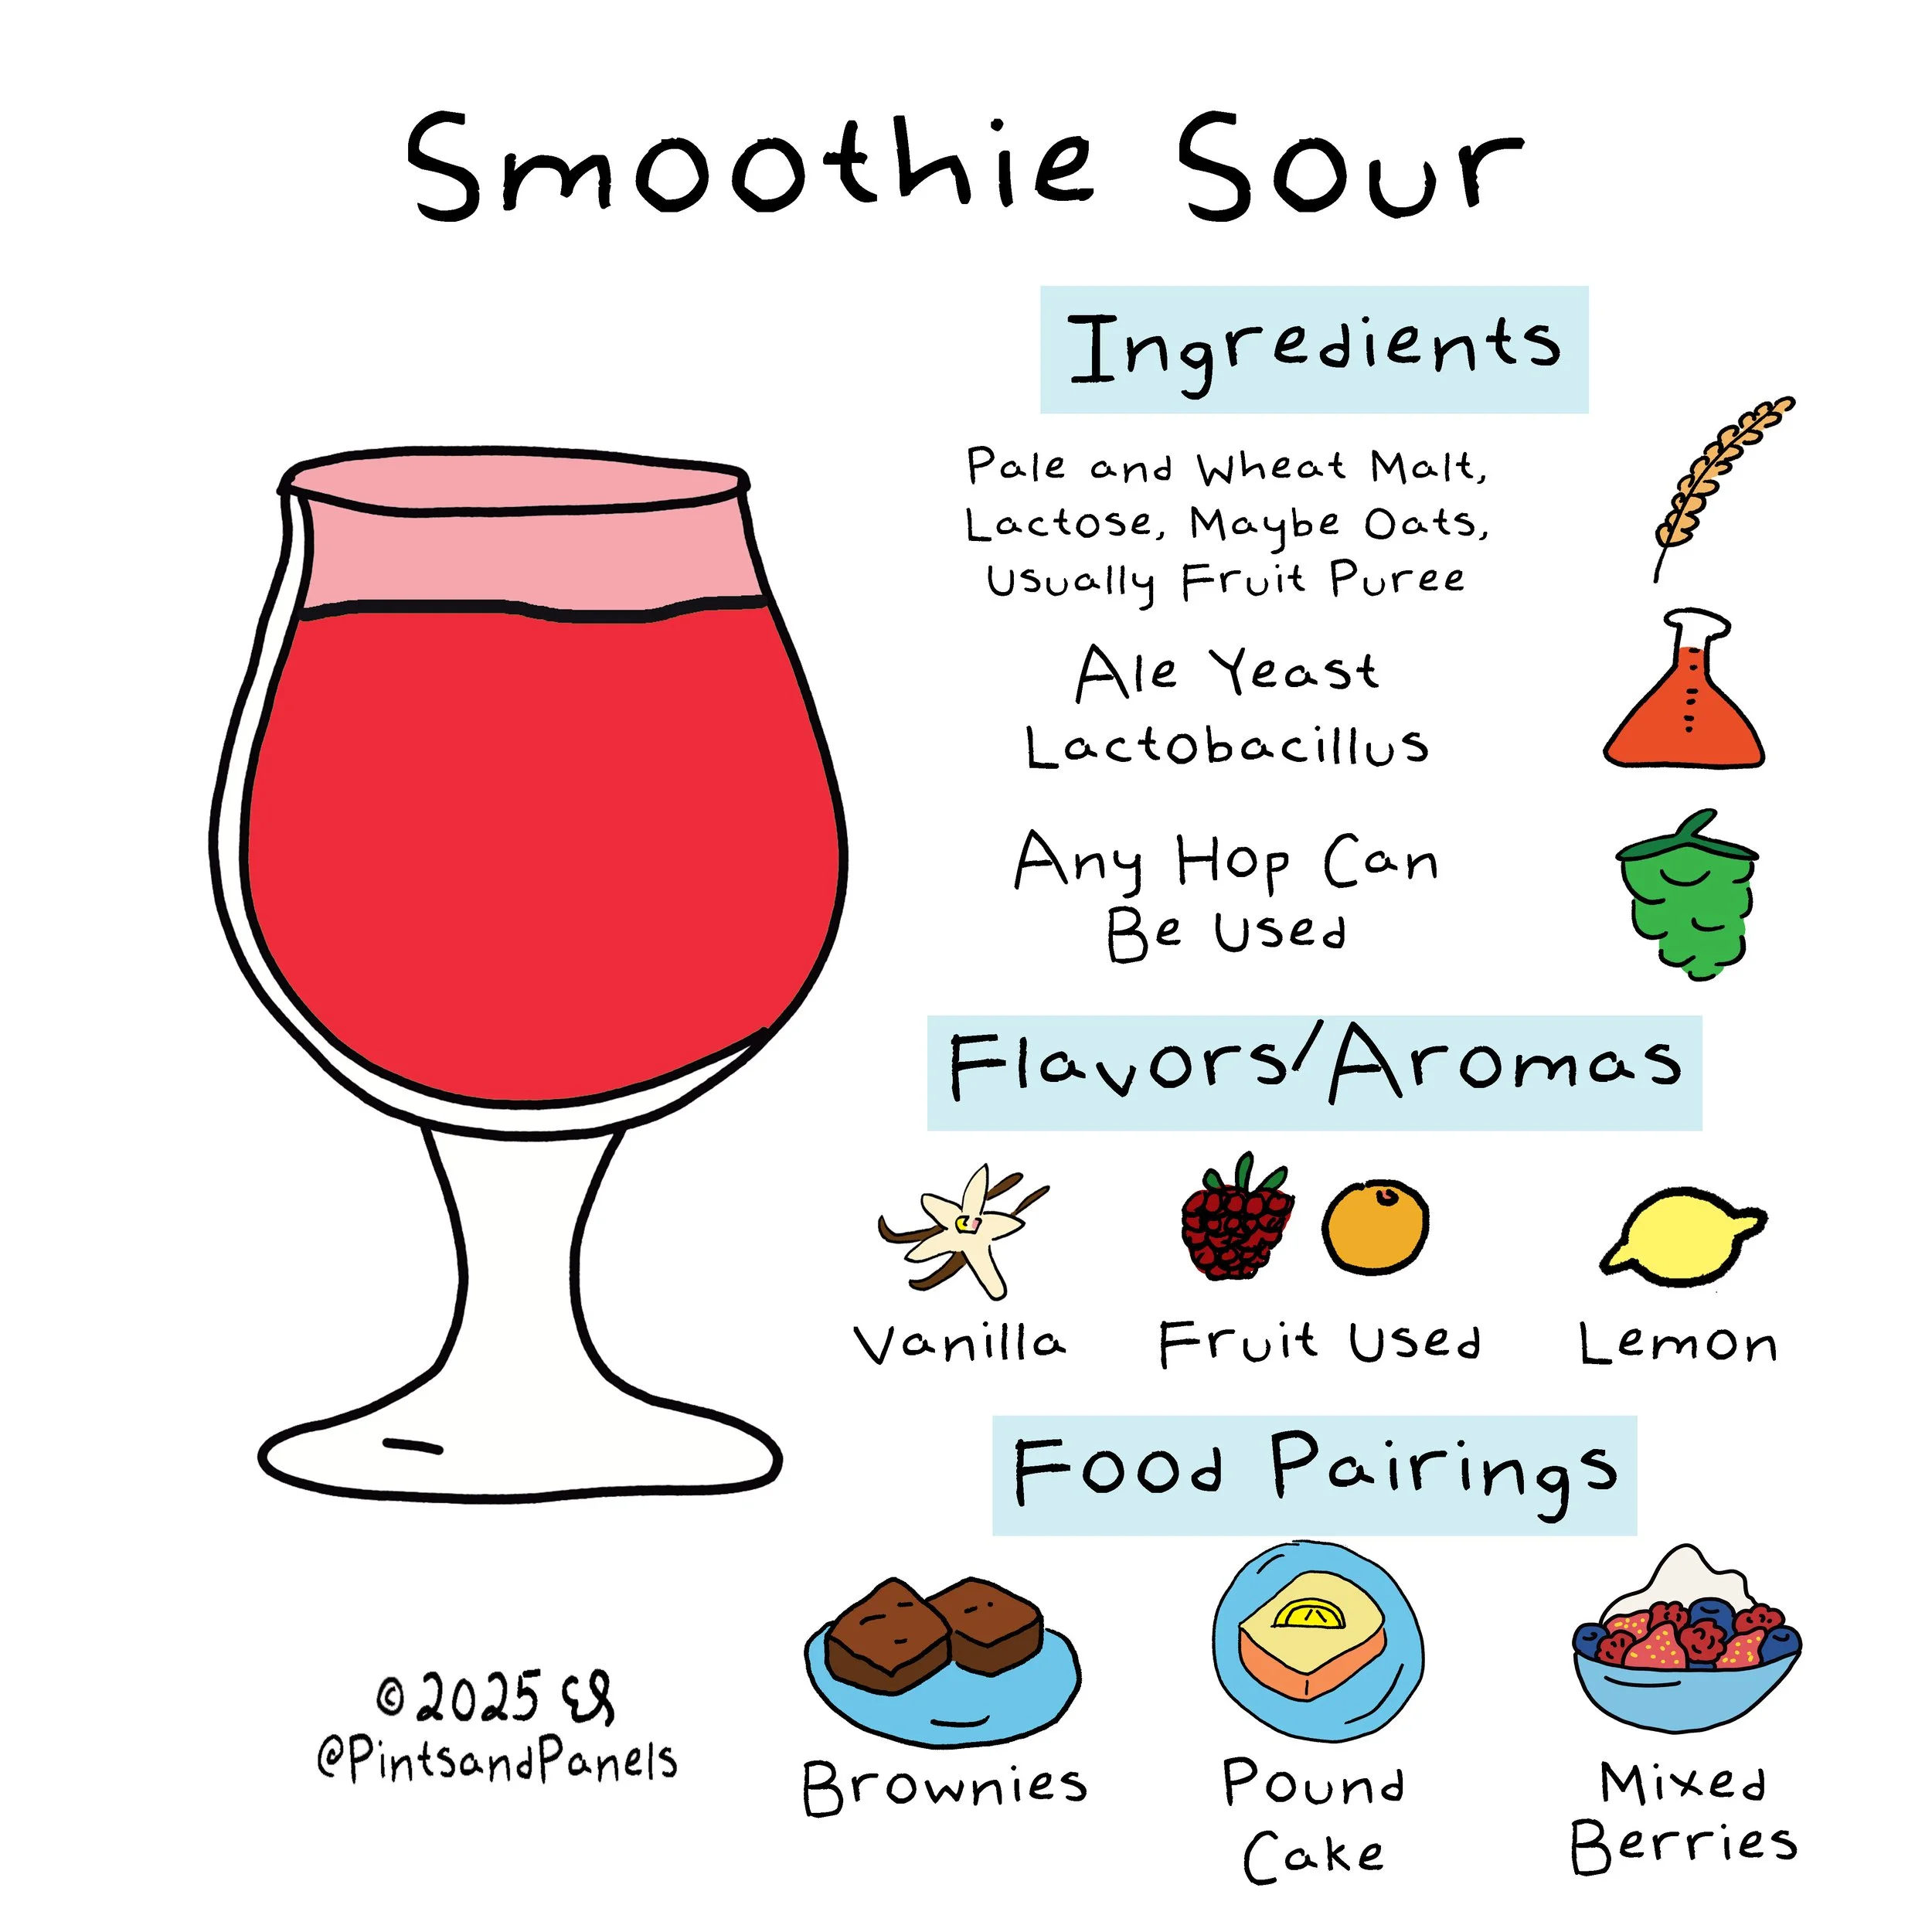 Smoothie Sour
Ingredients
Pale and Wheat Malt,
Lactose, Maybe Oats,
Usually Fruit Puree
Ale Yeast
Lactobacillus
Any Hop Can
Be Used
Flavors/Aromas
Vanilla
Fruit Used
Lemon
Food Pairings
Brownies
Pound
Cake
Mixed
Berries
©2025
@PintsandPanels